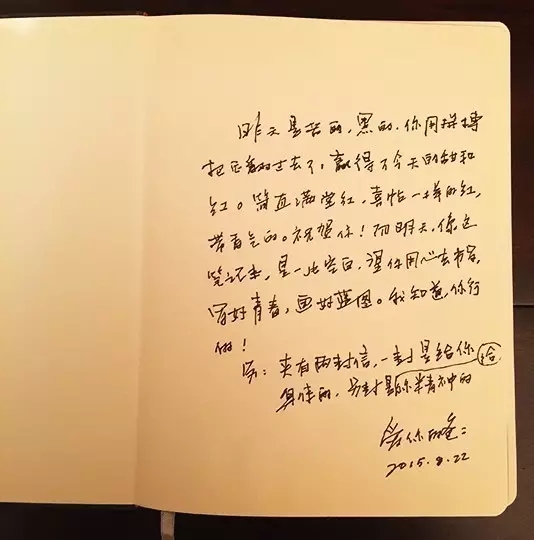 昨天是苦的，黑的，你用拼搏
把它翻过去了，赢得了今天的甜和
红。简直满堂红，喜帖一样的红，
带喜气的。祝贺你！而明天，像这
笔记本，是一片空白，望你用心去书写，
写好青春，画好蓝图。我知道，你行
的！
另：夹有两封信，一封是给你
具体的，另封是给你半精神的
爱你的爸：
2015.8.22